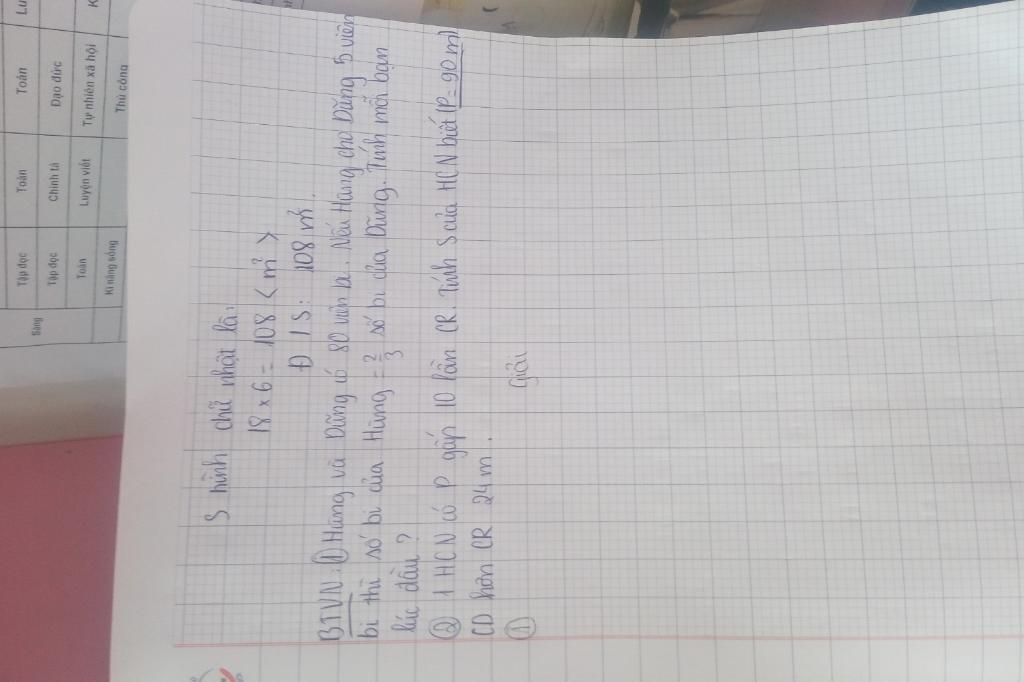 Lu
Toán
Toán
Tập đọc
Sáng
K
Đạo đức
Chính tả
Tập đọc
Tự nhiên xã hội
Luyện viết
Toán
Thủ công
Kĩ năng sống
S hình chữ nhật là:
18 x 6 = 108 < m² >
Đ / S: 108 m².
BTVN: ① Hùng và Dũng có 80 viên bi. Nếu Hùng cho Dũng 5 viên
bi thì số bi của Hùng = 2/3 số bi của Dũng. Tính mỗi bạn
lúc đầu?
② 1 HCN có P gấp 10 lần CR. Tính S của HCN biết (P = 90 m)
CD hơn CR 24 m.
Giải
①